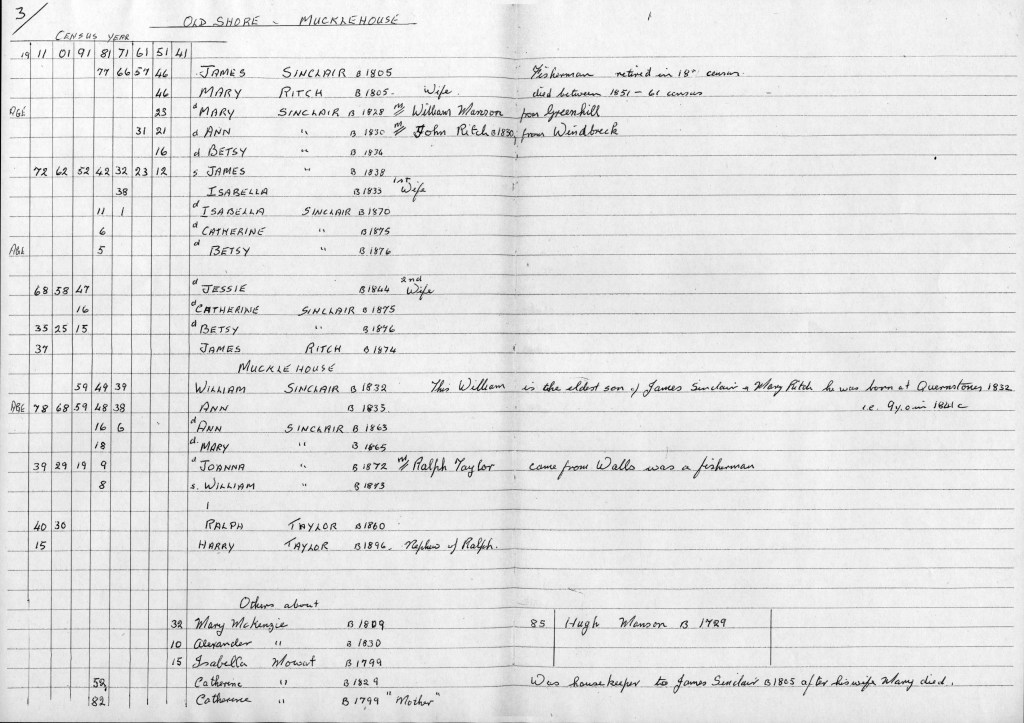 3/
OLD SHORE - MUCKLEHOUSE
CENSUS YEAR
19 11 01 91 81 71 61 51 41
77 66 57 46 JAMES SINCLAIR B 1805 Fisherman retired in 18" census.
46 MARY RITCH B 1805. Wife. died between 1851-61 census
AGE 23 d MARY SINCLAIR B 1828 m William Manson from Greenhill
31 21 d ANN " B 1830 m John Ritch B 1830, from Windbreck
16 d BETSY " B 1836
72 62 52 42 32 23 12 s JAMES " B 1838
38 ISABELLA B 1833 1st Wife
11 1 d ISABELLA SINCLAIR B 1870
6 d CATHERINE " B 1875
AGE 5 d BETSY " B 1876
68 58 47 d JESSIE B 1844 2nd Wife
16 d CATHERINE SINCLAIR B 1875
35 25 15 d BETSY " B 1876
37 JAMES RITCH B 1874
MUCKLEHOUSE
59 49 39 WILLIAM SINCLAIR B 1832 This William is the eldest son of James Sinclair & Mary Ritch he was born at Quernstones 1832
AGE 78 68 59 48 38 ANN B 1833. i.e. 9 y.o in 1841 c
16 6 d ANN SINCLAIR B 1863
18 d. MARY " B 1865
39 29 19 9 d JOANNA " B 1872 m Ralph Taylor came from Walls was a fisherman
8 s. WILLIAM " B 1873
1
40 30 RALPH TAYLOR B 1860
15 HARRY TAYLOR B 1896. Nephew of Ralph.
Others about
32 Mary McKenzie B 1809 85 Hugh Manson B 1729
10 Alexander " B 1830
15 Isabella Mowat B 1799
58 Catherine " B 1829 Was housekeeper to James Sinclair B 1805 after his wife Mary died.
82 Catherence " B 1799 "Mother"